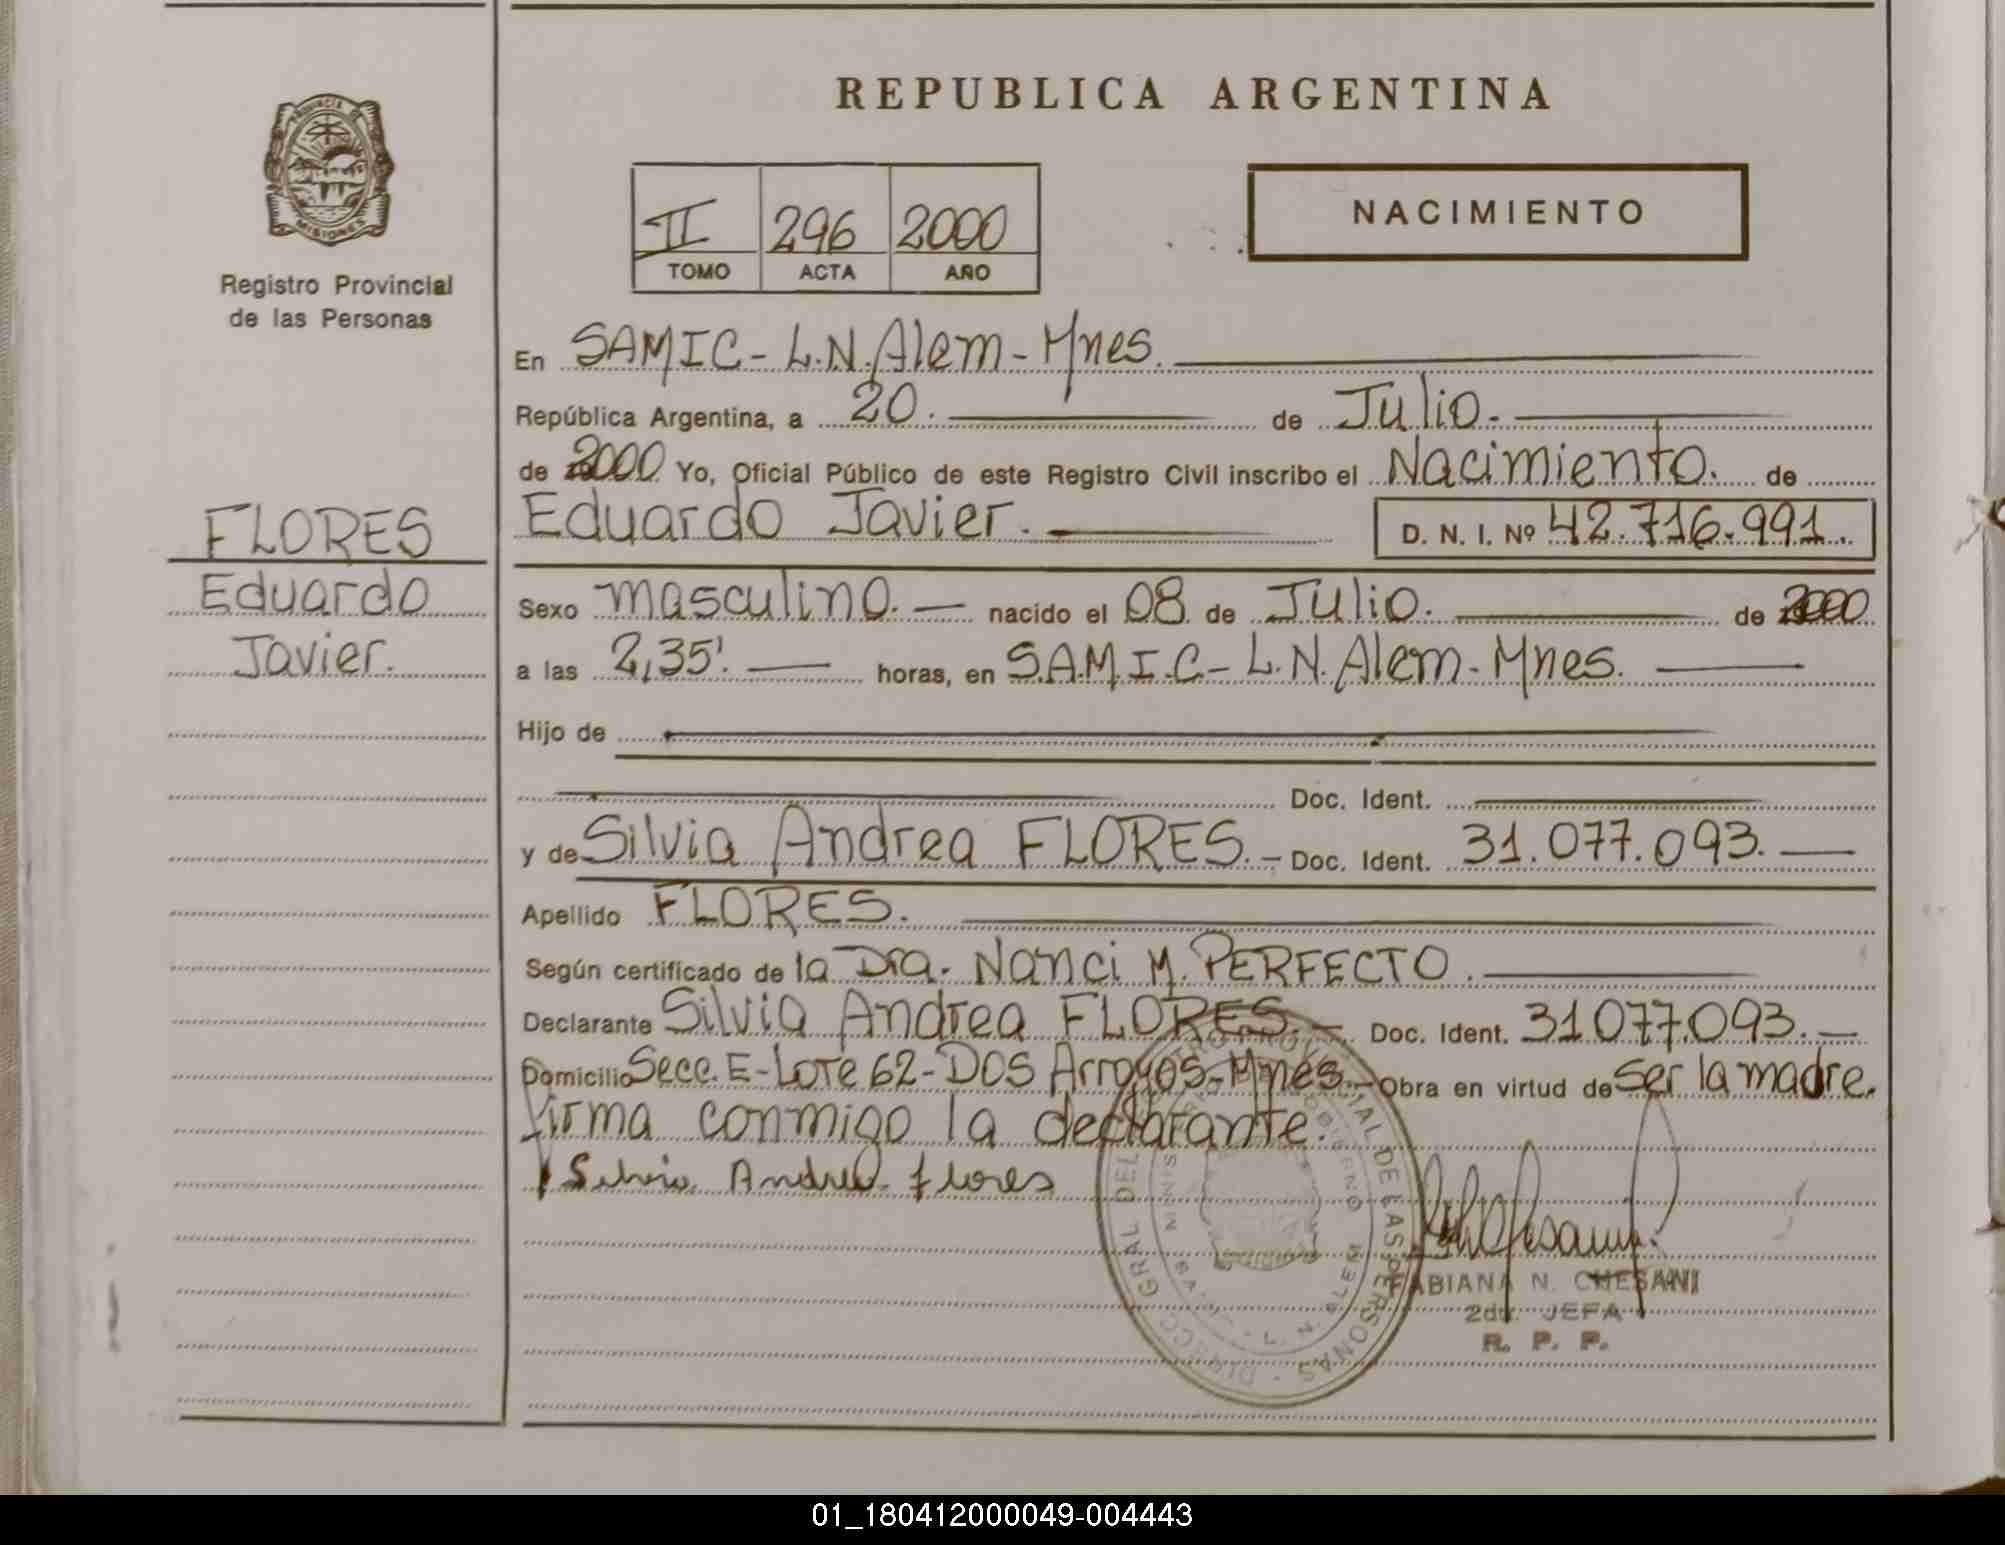 REPUBLICA ARGENTINA
PROVINCIA DE
MISIONES
Registro Provincial
de las Personas
II 296 2000
TOMO ACTA AÑO
NACIMIENTO
En SAMIC - L.N. Alem - Mnes.
República Argentina, a 20. de Julio.
de 2000 Yo, Oficial Público de este Registro Civil inscribo el Nacimiento. de
Eduardo Javier. D. N. I. Nº 42.716.991.
FLORES
Eduardo
Javier.
Sexo masculino. nacido el 08 de Julio. de 2000
a las 2,35'. horas, en S.A.M.I.C - L.N. Alem - Mnes.
Hijo de
Doc. Ident.
y de Silvia Andrea FLORES. - Doc. Ident. 31.077.093.
Apellido FLORES.
Según certificado de la Dra. Nanci M. PERFECTO.
Declarante Silvia Andrea FLORES. - Doc. Ident. 31077.093.
Domicilio Secc. E - Lote 62 - DOS Arroyos - Mnes. - Obra en virtud de ser la madre.
firma conmigo la declarante.
Silvia Andrea flores
DIRECC. GRAL DEL REGISTRO PROVINCIAL DE LAS PERSONAS
L. N. ALEM
FABIANA N. CHESANI
2da. JEFA
R. P. P.
01_180412000049-004443